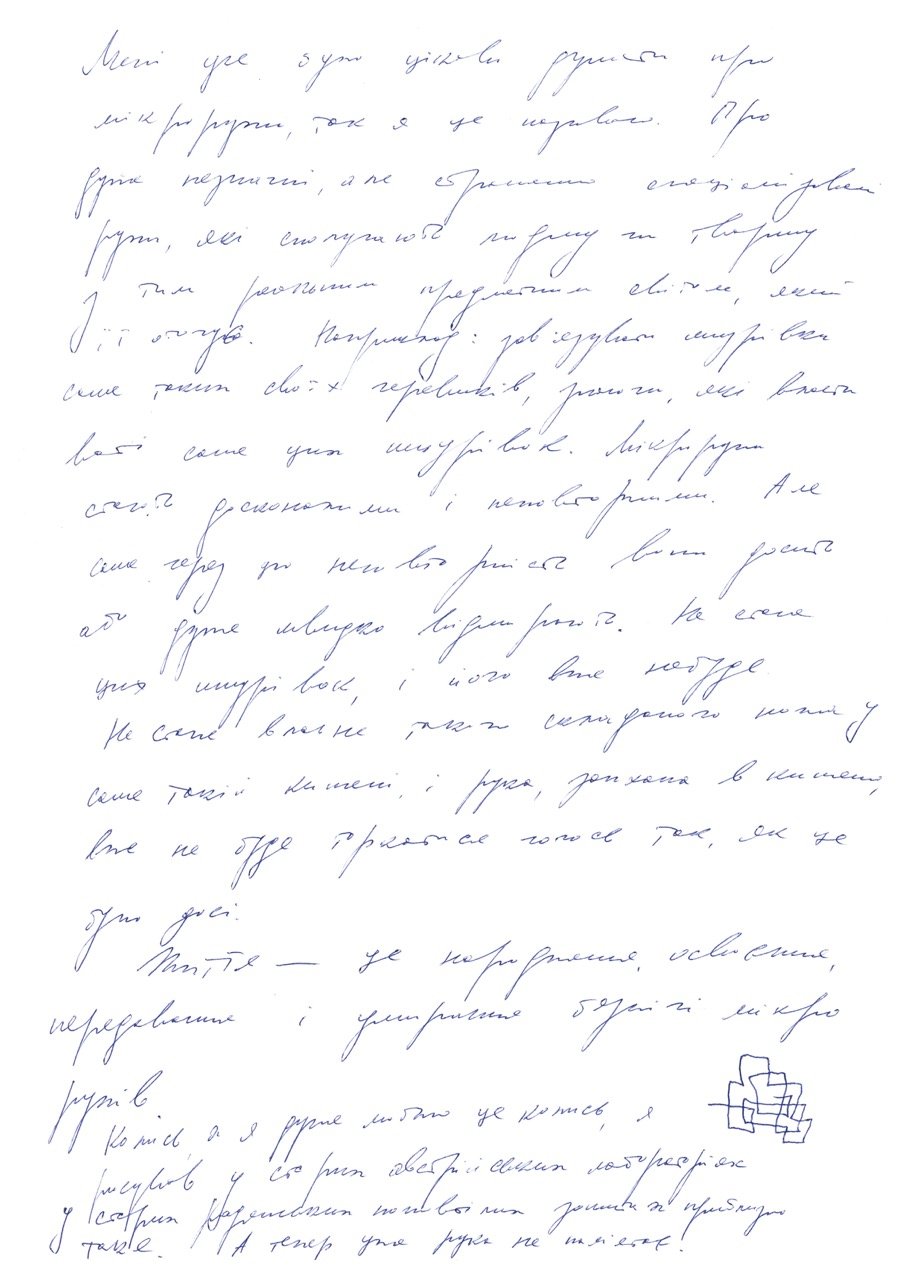 Мені уже було цікаво думати про
мікрорухи, так я це називаю. Про
дуже незначні, але страшенно спеціалізовані
рухи, які сполучають людину чи тварину
з тим реальним предметним світом, який
її оточує. Наприклад: зав'язувати шнурівки
саме таких своїх черевиків, рухи, які власти
вані саме цих шнурівок. Мікрорухи
стають досконалими і неповторними. Але
саме через цю неповторність вони досить
або дуже швидко відмирають. Не стане
цих шнурівок, і його вже не буде
Не стане власне такого складаного ножа у
саме такій кишені, і рука, запхана в кишеню,
вже не буде торкатися чогось так, як це
було досі.
Життя — це народження, освоєння,
передавання і умирання безлічі мікро
рухів.
Колись, а я дуже люблю це колись, я
рисував у старих австрійських лабораторіях
у старих радянських зошитах приблизно
таке. А тепер уже рука не пам'ятає.